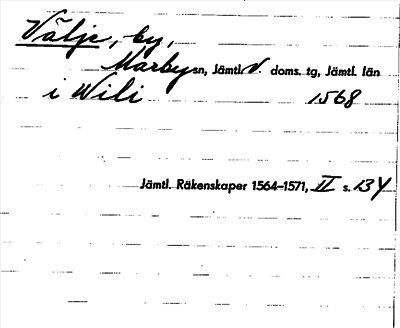 Välje, by,
Marby sn, Jämtl. V. doms. tg, Jämtl. län
i Wili 1568
Jämtl. Räkenskaper 1564-1571, II s. 134